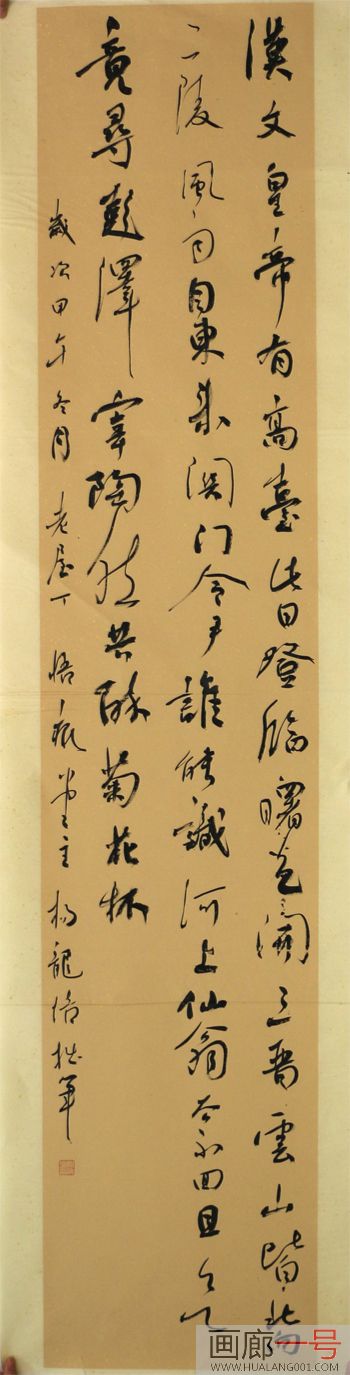 漢文皇帝有高臺此日登臨曙色開三晉雲山皆北向
二陵風雨自東來関门令尹誰能識河上仙翁去不回且欲
竟尋彭澤宰陶然共醉菊花杯
歲次甲午冬月老屋丁悟堂主楊龍拙筆
画廊一号
WWW.HUALANG001.COM